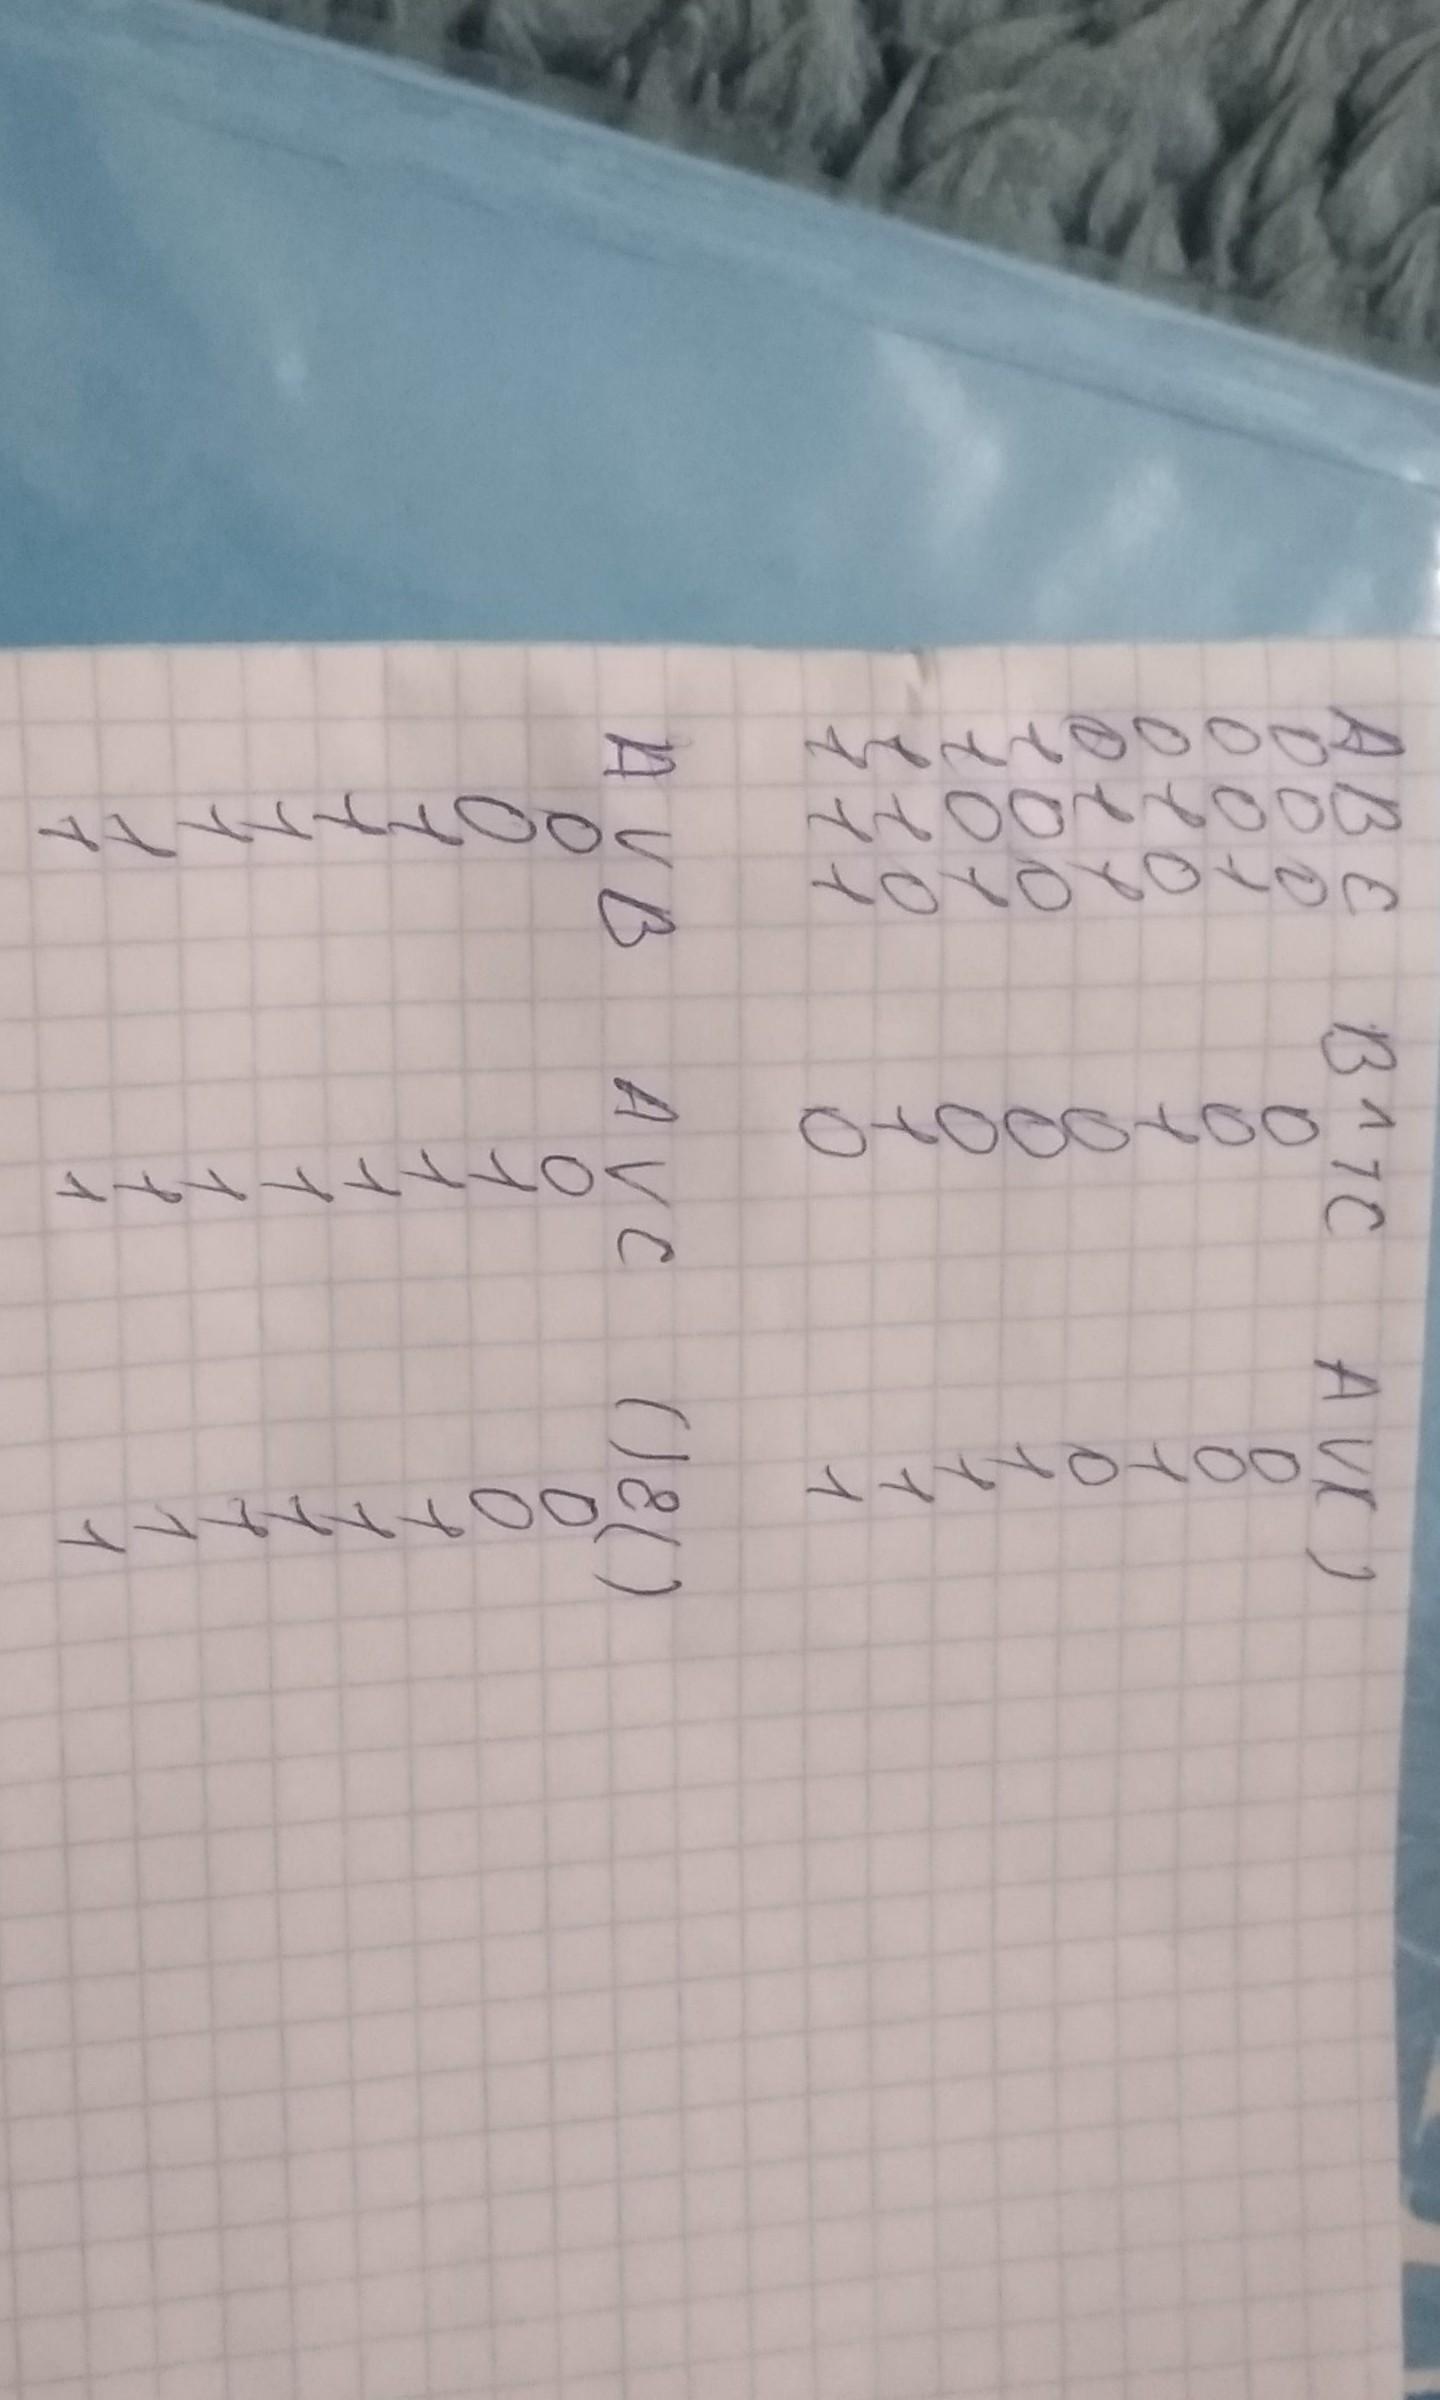 A B C B ∧ ¬C A V( )
0 0 0 0 0
0 0 1 0 0
0 1 0 1 1
0 1 1 0 0
1 0 0 0 1
1 0 1 0 1
1 1 0 1 1
1 1 1 0 1
A V B A V C ( )&( )
0 0 0
0 1 0
1 1 1
1 1 1
1 1 1
1 1 1
1 1 1
1 1 1